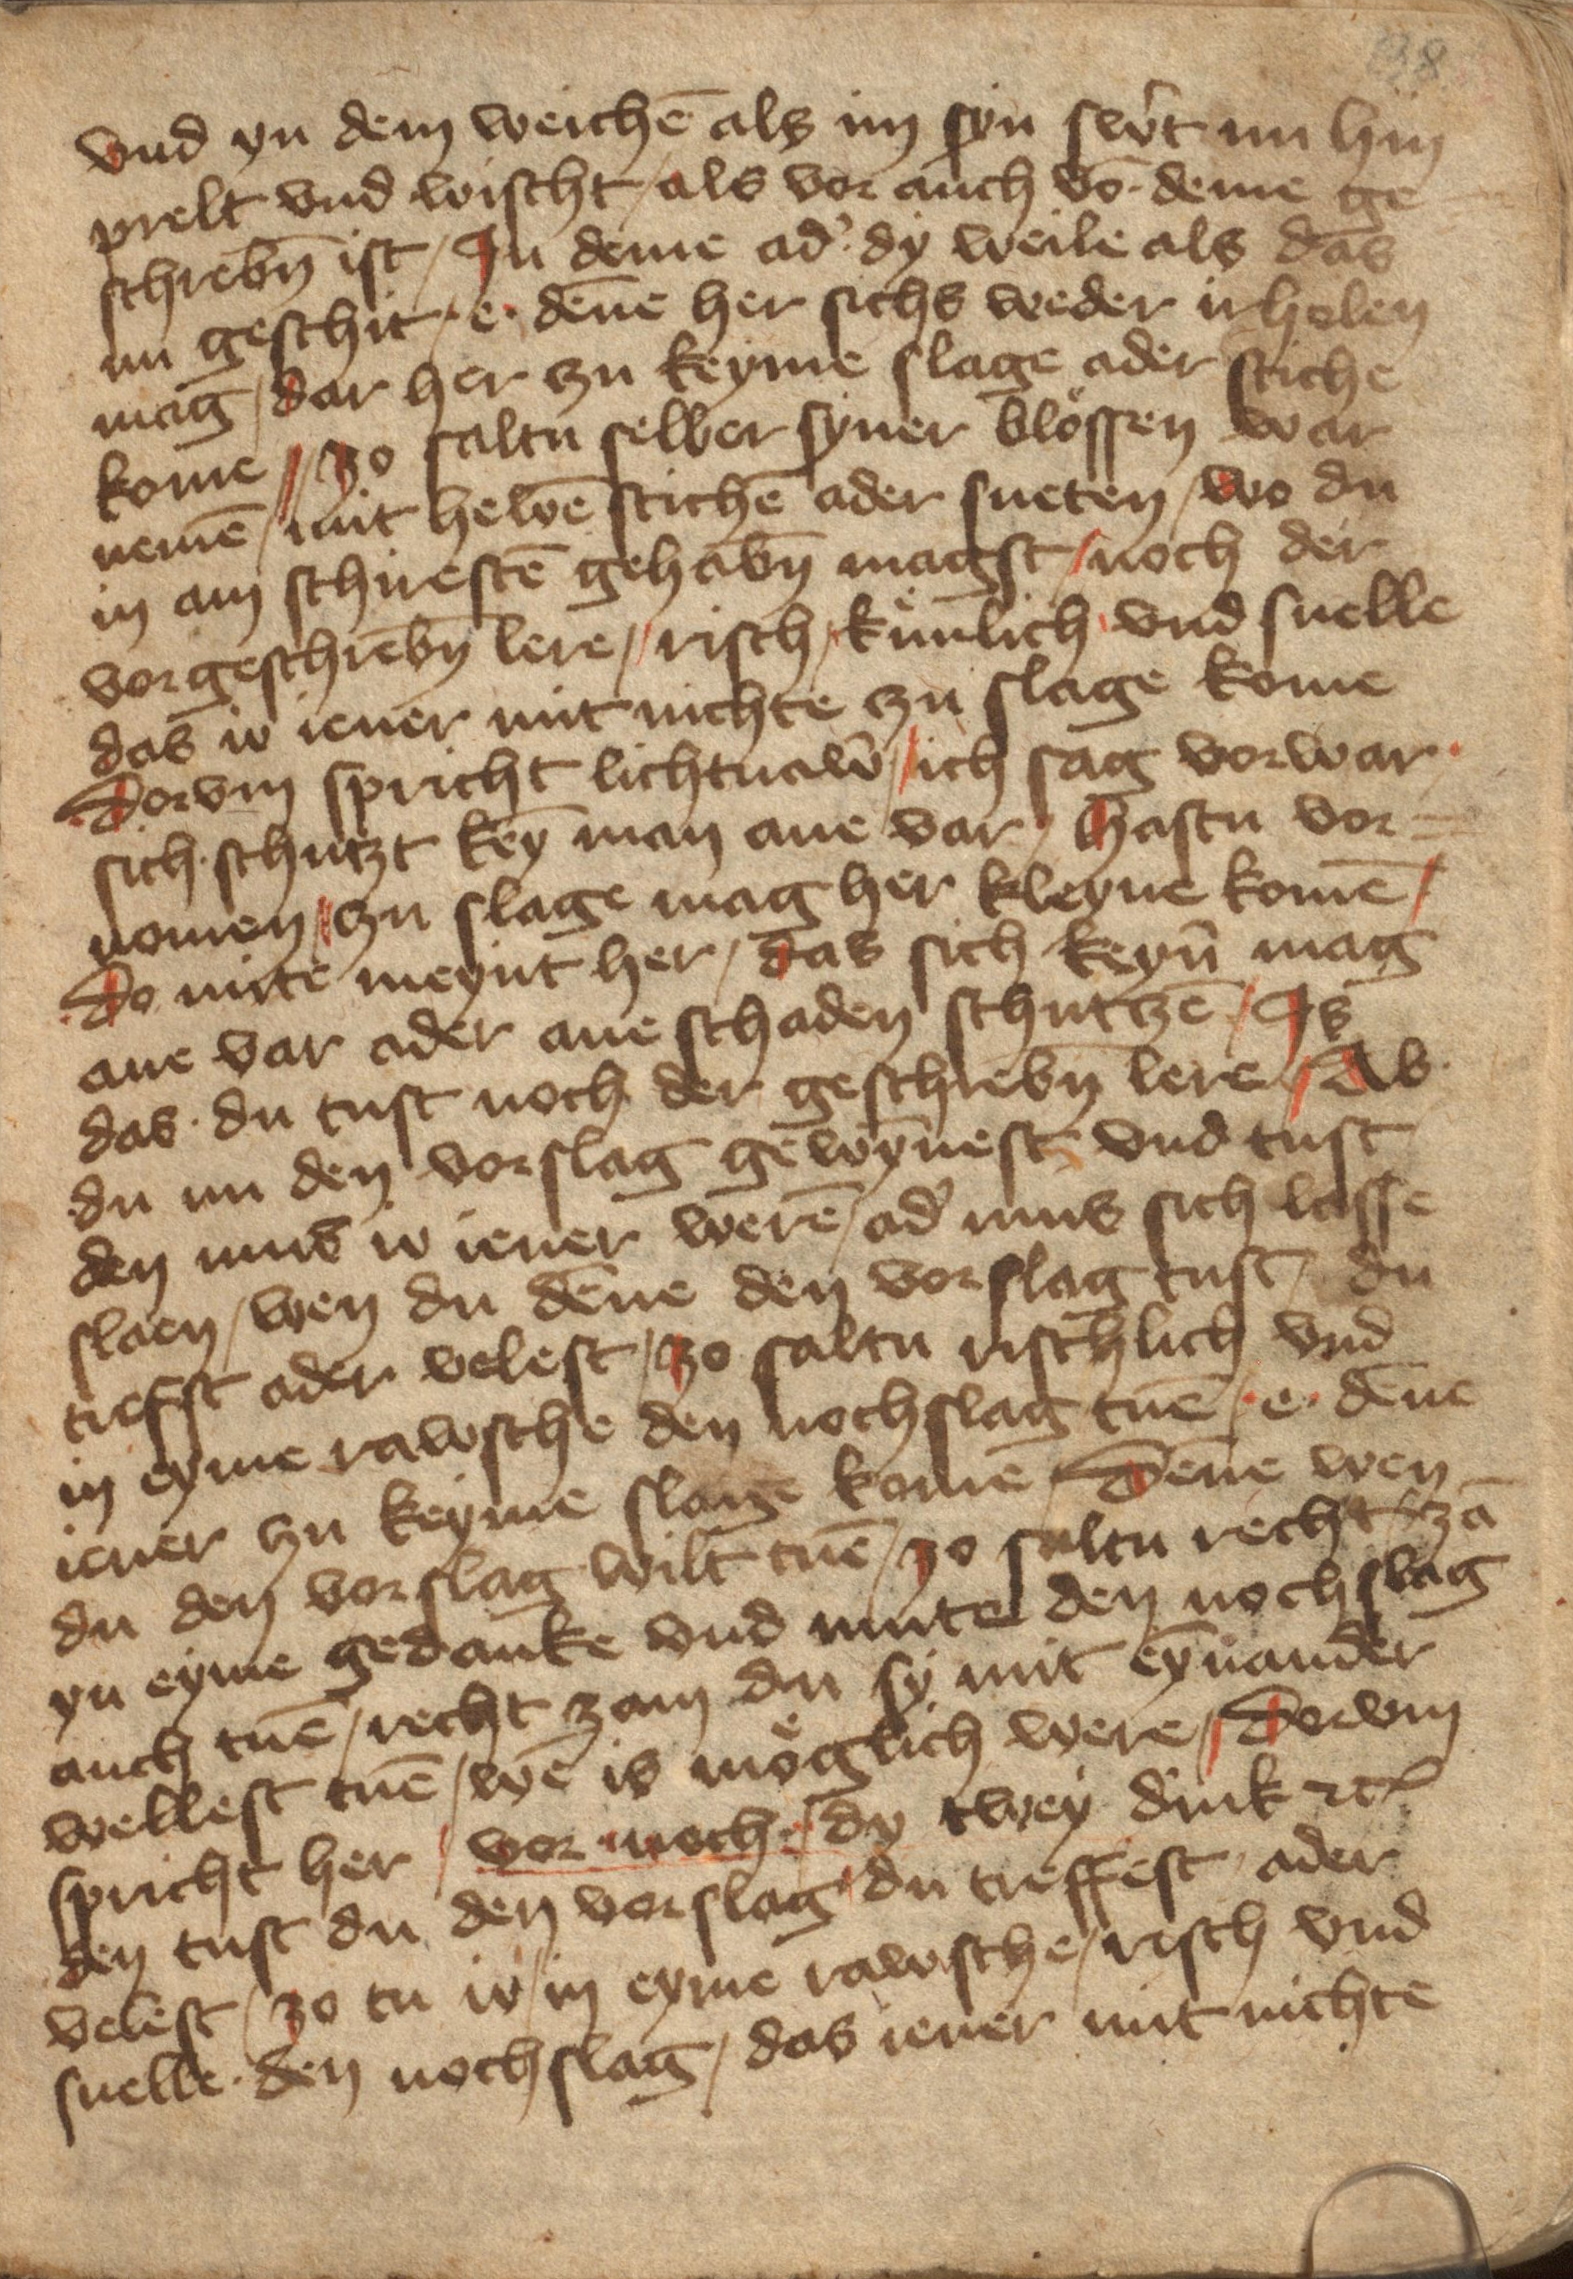 38
vnd yn dem weichē als im syn swˢt nü hin
prelt vnd wischt / als vor auch vō deme ge
schrebn̄ ist / In deme adˢ dy weile als das
nü geschit · e · dēne her sichs weder irholen
mag / dar her zu keyme slage ader stiche
kome // zo saltu selber syner blössen war
nemē / mit hewē stichē ader sneten / wo du
in am schirestē gehabn̄ magst / noch der
vorgeschrebn̄ lere / risch / künlich vnd snelle
das io iener mit nichte zu slage kome
Dorvm spricht lichtnawˢ / ich sag vorwar
sich schutzt keȳ man ane var / hastu vor=
nomen / zu slage mag her kleyne komē /
Do mite meynt her / das sich keynˢ mag
ane var ader ane schaden schutzē / Is
das du tust noch der geschrebn̄ lere / Ab
du nü den vorslag gewȳnest vnd tust
den mus io iener werē / adˢ mus sich losse
slaen / wen du dēne den vorslag tust / du
trefst ader velest / zo saltu rischlich vnd
in eyme rawsche den nochslag tuē · e · dēne
iener zu keyme slage kome / Dēne wen
du den vorslag wilt tuē / zo saltu recht zā
yn eyme gedanke vnd mute den nochslag
auch tuē / recht zam du sy mit eynander
wellest tuē / wē is möglich were / Dorvm
spricht her / vor noch / dy twey dink etc̄
den tust du den vorslag / du treffest ader
velest / zo tu io in eyme rawsche / risch vnd
snelle den nochslag / das iener mit nichte